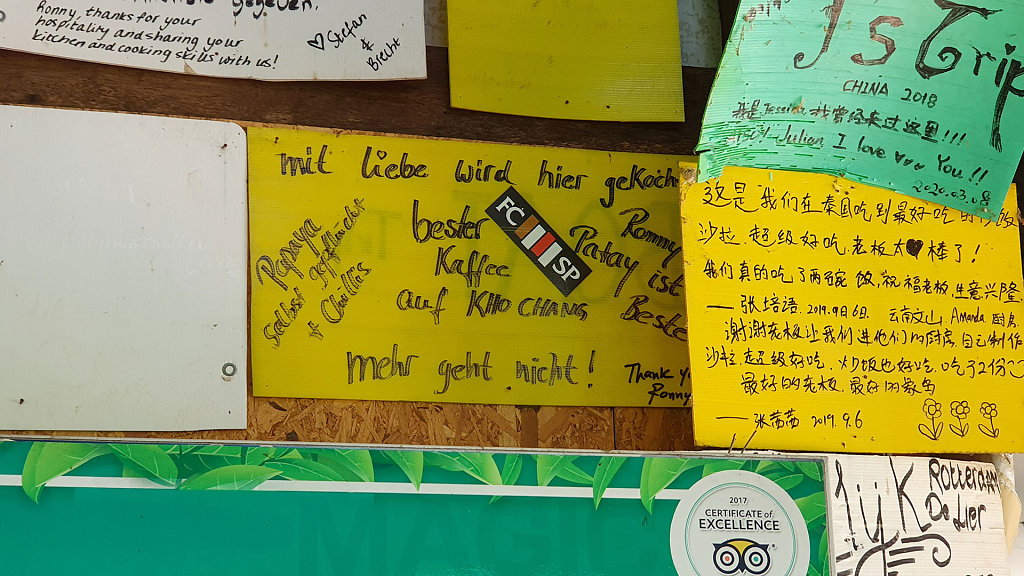 Ronny, thanks for your
hospitality and sharing your
kitchen and cooking skills with us!
♡ Stefan
&
mit Liebe wird hier gekoch
Papaya
selbst gepflückt
+ Chillies
bester
Kaffee
auf KHO CHANG
FC
SP
Ronny
Patay ist
Beste
mehr geht nicht!
Thank y
Ronny
JsTrip
CHINA 2018
我是Jessica, 我曾经来过这里!!!
Julian I love You!!
2020.03.08
这是我们在泰国吃到最好吃的
沙拉.超级好吃.老板太♥棒了!
我们真的吃了两碗饭,祝福老板,生意兴隆.
—张培语.2019.9月6日. 云南文山. Amanda.厨房.
谢谢老板让我们进他们的厨房自己制作
沙拉.超级好吃. 炒饭也好吃.吃了2份
最好的老板.最好的象岛
—张茜茜 2019.9.6
MAGIC
2017
CERTIFICATE of
EXCELLENCE
Rotterdam
De Lier
2018